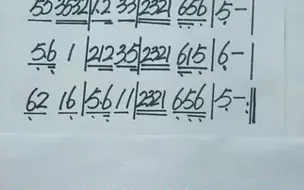 55 3532|12 33|2321 656|5-
56 1|212 35|2321 615|6-|
62 16|56 11|2321 656|5-:‖